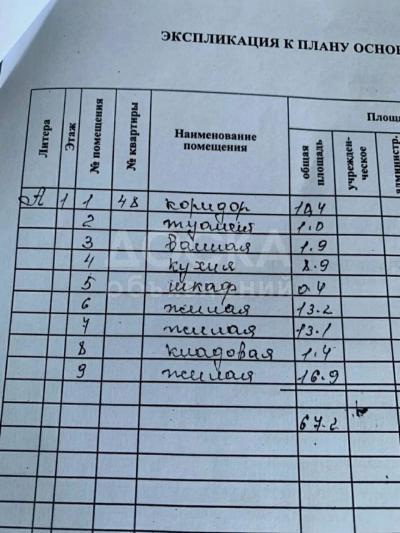 ЭКСПЛИКАЦИЯ К ПЛАНУ ОСНОВ
Литера
Этаж
№ помещения
№ квартиры
Наименование помещения
Площа
общая площадь
учрежден-ческое
администр.
А 1 1 48 коридор 10,4
2 туалет 1.0
3 ванная 1.9
4 кухня 8.9
5 шкаф 0.4
6 жилая 13.2
7 жилая 13.1
8 кладовая 1.4
9 жилая 16.9
67.2
ДОСКА
объявлений